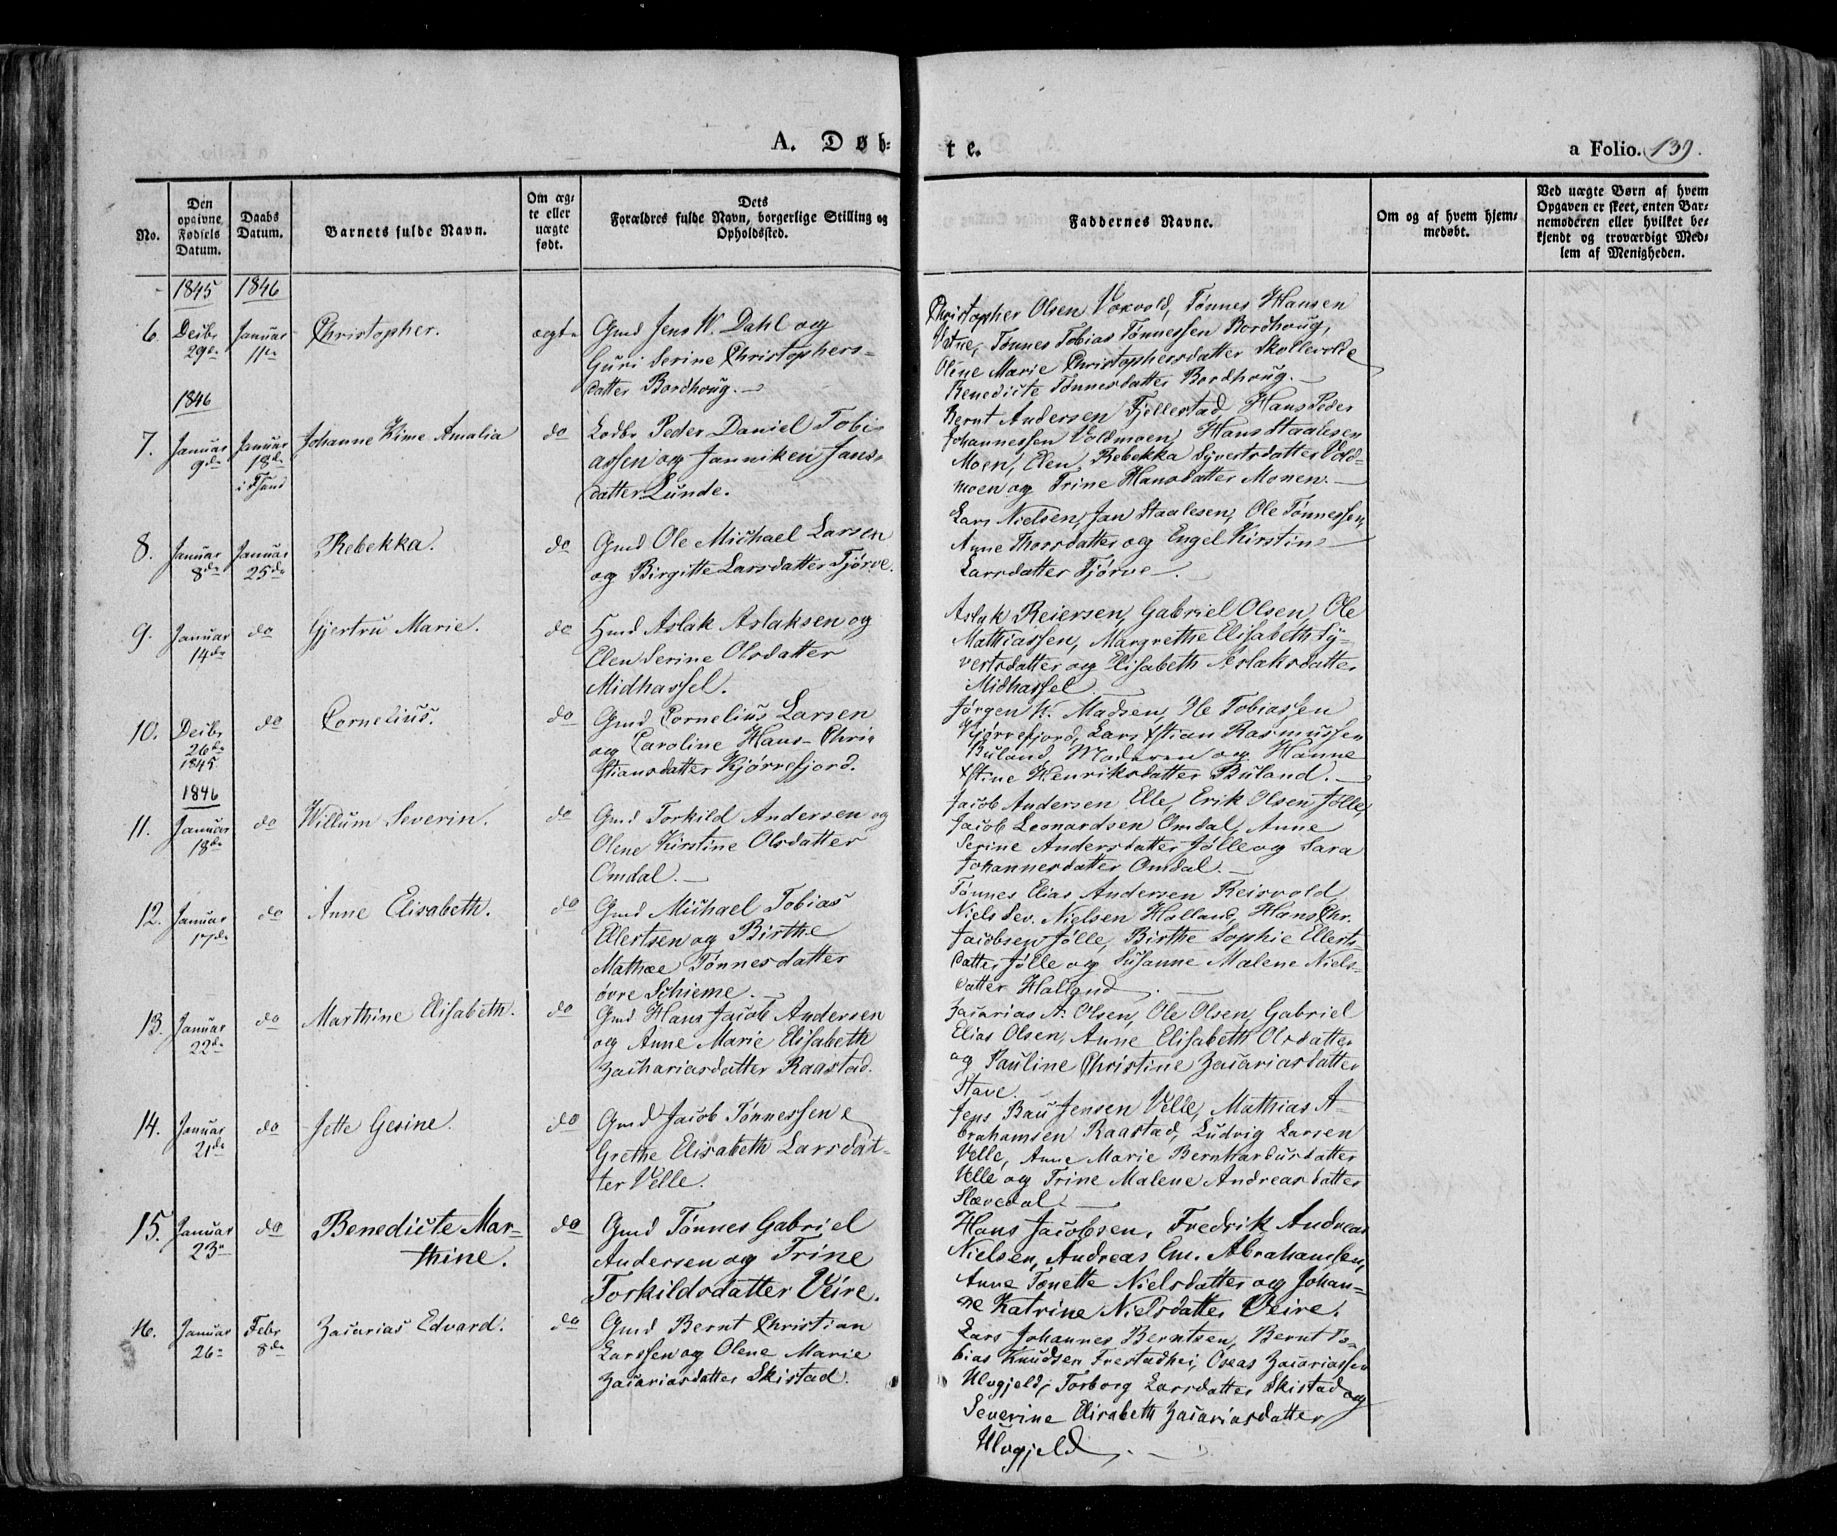 A. Døb-
te.
a Folio. 139.
No.
Den opgivne Fødsels Datum.
Daabs Datum.
Barnets fulde Navn.
Om ægte eller uægte født.
Dets Forældres fulde Navn, borgerlige Stilling og Opholdssted.
Faddernes Navne.
Om og af hvem hjemmedøbt.
Ved uægte Børn af hvem Opgaven er skeet, enten Barnemoderen eller hvilket bekjendt og troværdigt Medlem af Menigheden.
1845 1846
6. Decbr 29de Januar 11te Christopher. ægte
Gmd Jens W. Dahl og
Guri Serine Christophers-
datter Bordhoug.
Christopher Olsen Voxvold, Tønnes Hansen
Østue, Tønnes Tobias Tønnessen Bordhoug,
Oline Marie Christophersdatter Skollevolde
Benedicte Tønnesdatter Bordhoug.
1846
7. Januar 9de Januar 18de i Hsund Johanne Kime Amalia do
Lodbr Peder Daniel Tobi-
assen og Janniken Jans-
datter Lunde.
Bernt Andersen Fjellestad, Hans Peder
Johannessen Voldmoen, Hans Staalesen
Moen, Elen Rebekka Syvertsdatter Vold-
moen og Trine Hansdatter Monen.
8. Januar 8de Januar 25de Rebekka. do
Gmd Ole Michael Larsen
og Birgitte Larsdatter Tjørve.
Lars Nielsen, Jan Staalesen, Ole Tønnessen,
Anne Thorsdatter og Engel Kirstine
Larsdatter Tjørve.
9. Januar 14de do Gjertru Marie. do
Hmd Aslak Aslaksen og
Elen Serine Olsdatter
Midhassel.
Aslak Reiersen, Gabriel Olsen, Ole
Mathiassen, Margrethe Elisabeth Sy-
vertsdatter og Elisabeth Aslaksdatter
Midhassel
10. Decbr 26de 1845 do Cornelius. do
Gmd Cornelius Larsen
og Caroline Hans-Chri-
stiansdatter Kjørrefjord.
Jørgen W. Madsen, Ole Tobiassen
Kjørrefjord, Lars Xstian Rasmussen
Buland, Moderen og Hanne
Xstine Henriksdatter Buland.
1846
11. Januar 18de do Willum Severin. do
Gmd Torkild Andersen og
Olene Kirstine Olsdatter
Omdal.
Jacob Andersen Elle, Erik Olsen Jølle,
Jacob Leonardsen Omdal, Anne
Serine Andersdatter Jølle og Sara
Johannesdatter Omdal.
12. Januar 17de do Anne Elisabeth. do
Gmd Michael Tobias
Elertsen og Birthe
Mathea Tønnesdatter
øvre Schieme.
Tønnes Elias Andersen Reisvold,
Niels Sev. Nielsen Halland, Hans Chr.
Jacobsen Jølle, Birthe Sophie Ellerts-
datter Jølle og Susanne Malene Niels-
datter Halland
13. Januar 22de do Marthine Elisabeth. do
Gmd Hans Jacob Andersen
og Anne Marie Elisabeth
Zachariasdatter Raastad.
Zacarias A. Olsen, Ole Olsen, Gabriel
Elias Olsen, Anne Elisabeth Olsdatter
og Pauline Christine Zacariasdatter
Stave.
14. Januar 21de do Jette Gesine. do
Gmd Jacob Tønnessen &
Grethe Elisabeth Larsdat-
ter Velle.
Jens Bau Jensen Velle, Mathias A-
brahamsen Raastad, Ludvig Larsen
Velle, Anne Marie Bernhardusdatter
Velle og Trine Malene Andreasdatter
Slævedal
15. Januar 23de do Benedicte Mar-
thine. do
Gmd Tønnes Gabriel
Andersen og Trine
Torkildsdatter Veire.
Hans Jacobsen, Fredrik Andreas
Nielsen, Andreas Em. Abrahamsen,
Anne Tonette Nielsdatter og Johan-
ne Katrine Nielsdatter Veire.
16. Januar 26de Febr 8de Zacarias Edvard. do
Gmd Bernt Christian
Larssen og Olene Marie
Zacariasdatter Skistad.
Lars Johannes Berntsen, Bernt To-
bias Knudsen Frestadhei, Oseas Zacariassen
Ulvgjeld, Torborg Larsdatter Skistad og
Severine Elisabeth Zacariasdatter
Ulvgjeld.